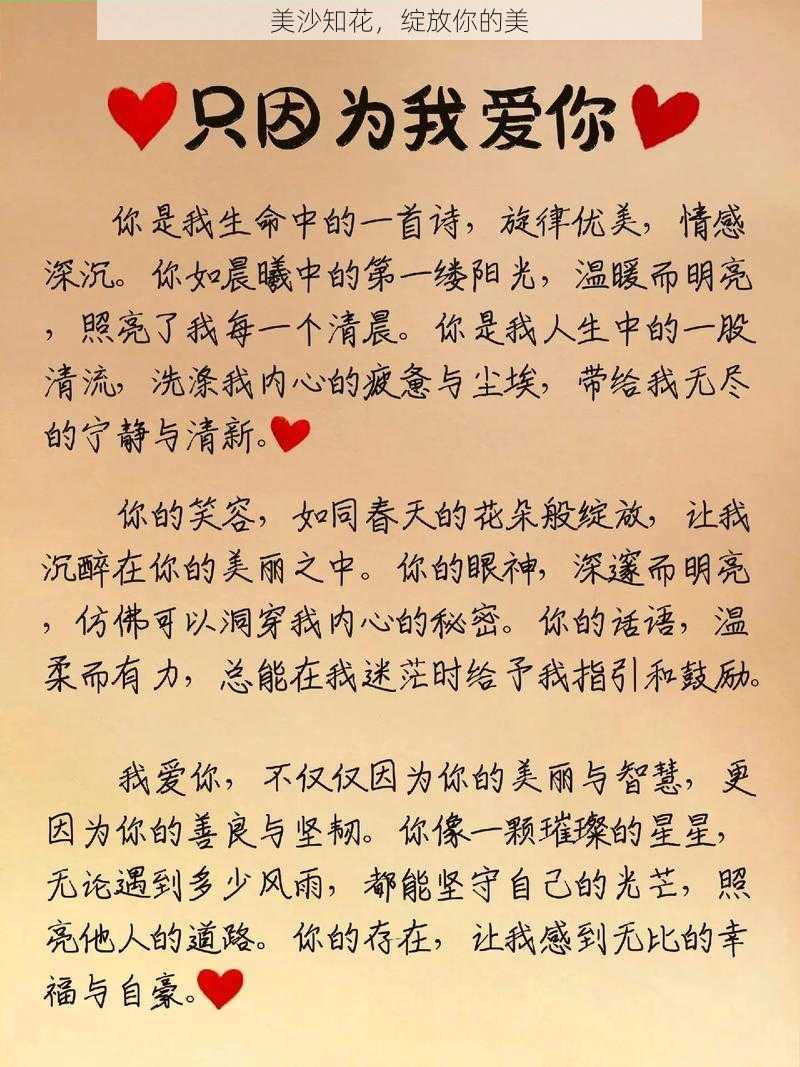 美沙知花，绽放你的美
只因为我爱你
你是我生命中的一首诗，旋律优美，情感
深沉。你如晨曦中的第一缕阳光，温暖而明亮
，照亮了我每一个清晨。你是我人生中的一股
清流，洗涤我内心的疲惫与尘埃，带给我无尽
的宁静与清新。
你的笑容，如同春天的花朵般绽放，让我
沉醉在你的美丽之中。你的眼神，深邃而明亮
，仿佛可以洞穿我内心的秘密。你的话语，温
柔而有力，总能在我迷茫时给予我指引和鼓励。
我爱你，不仅仅因为你的美丽与智慧，更
因为你的善良与坚韧。你像一颗璀璨的星星，
无论遇到多少风雨，都能坚守自己的光芒，照
亮他人的道路。你的存在，让我感到无比的幸
福与自豪。